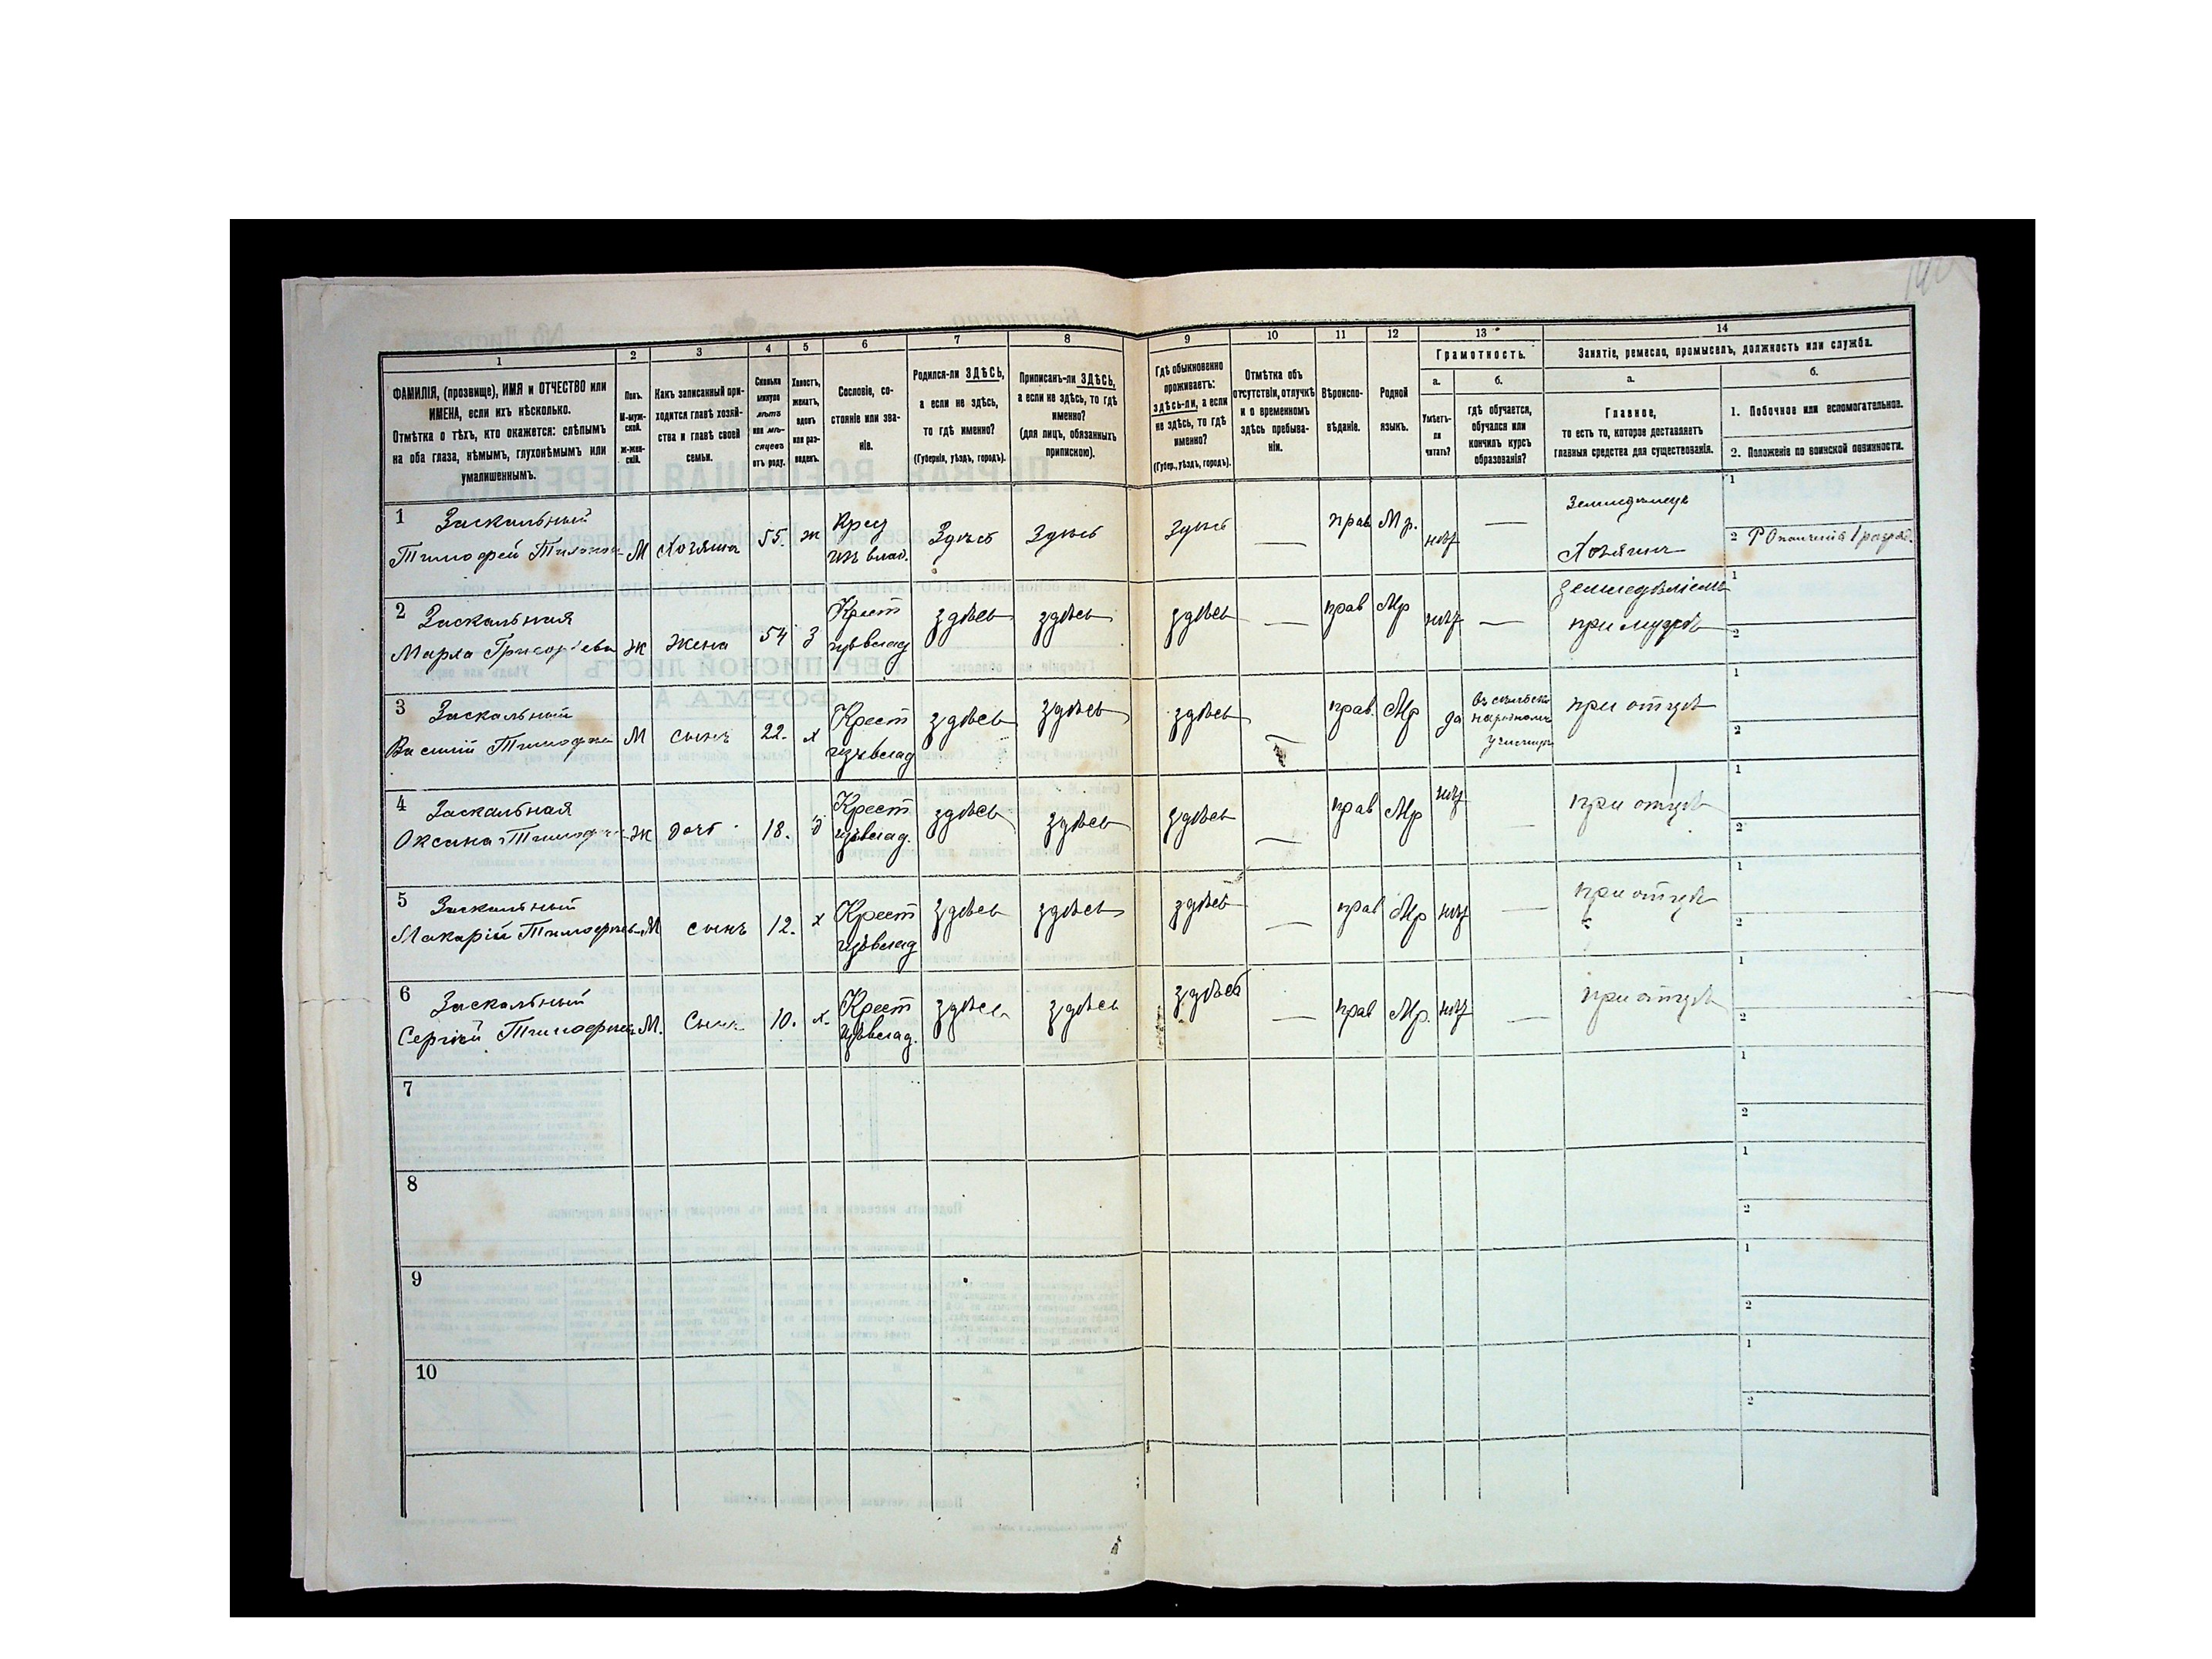 1 2 3 4 5 6 7 8 9 10 11 12 13 14
ФАМИЛІЯ, (прозвище), ИМЯ и ОТЧЕСТВО или
ИМЕНА, если ихъ нѣсколько.
Отмѣтка о тѣхъ, кто окажется: слѣпымъ
на оба глаза, нѣмымъ, глухонѣмымъ или
умалишеннымъ.
Полъ.
М-муж-
ской.
ж-жен-
скій.
Какъ записанный при-
ходится главѣ хозяй-
ства и главѣ своей
семьи.
Сколько
минуло
лѣтъ
или мѣ-
сяцевъ
отъ роду.
Холостъ,
женатъ,
вдовъ
или раз-
веденъ.
Сословіе, со-
стояніе или зва-
ніе.
Родился-ли ЗДѢСЬ,
а если не здѣсь,
то гдѣ именно?
(Губернія, уѣздъ, городъ).
Приписанъ-ли ЗДѢСЬ,
а если не здѣсь, то гдѣ
именно?
(для лицъ, обязанныхъ
припискою).
Гдѣ обыкновенно
проживаетъ:
здѣсь-ли, а если
не здѣсь, то гдѣ
именно?
(Губер., уѣздъ, городъ).
Отмѣтка объ
отсутствіи, отлучкѣ
и о временномъ
здѣсь пребыва-
ніи.
Вѣроиспо-
вѣданіе.
Родной
языкъ.
Грамотность.
а. б.
Умѣетъ-
ли
читать?
гдѣ обучается,
обучался или
кончилъ курсъ
образованія?
Занятіе, ремесло, промыселъ, должность или служба.
а. б.
Главное,
то есть то, которое доставляетъ
главныя средства для существованія.
1. Побочное или вспомогательное.
2. Положеніе по воинской повинности.
1 Заскальный Крест Земледѣлецъ 1
Тимофей М Хозяинъ 55. ж изъ влад. Здѣсь Здѣсь Здѣсь — прав Мр. нѣт — Хозяинъ 2
2 Заскальная Крест земледѣліемъ 1
Марѳа Григорьева Ж Жена 54 З изъ влад здѣсь здѣсь здѣсь — прав Мр нѣт — при мужѣ 2
3 Заскальный Крест 1
Василій Тимофѣев М сынъ 22. х изъ влад здѣсь здѣсь здѣсь — прав. Мр да въ сельском народномъ училищѣ при отцѣ 2
4 Заскальная Крест 1
Оксана Тимоф Ж дочь 18. д изъ влад. здѣсь здѣсь здѣсь — прав Мр нѣт — при отцѣ 2
5 Заскальный Крест 1
Макарій Тимофѣев М сынъ 12. х изъ влад здѣсь здѣсь здѣсь — прав Мр нѣт — при отцѣ 2
6 Заскальный Крест 1
Сергѣй Тимофѣев М. Сынъ 10. х. изъ влад. здѣсь здѣсь здѣсь — прав Мр. нѣт — при отцѣ 2
7 1
2
8 1
2
9 1
2
10 1
2